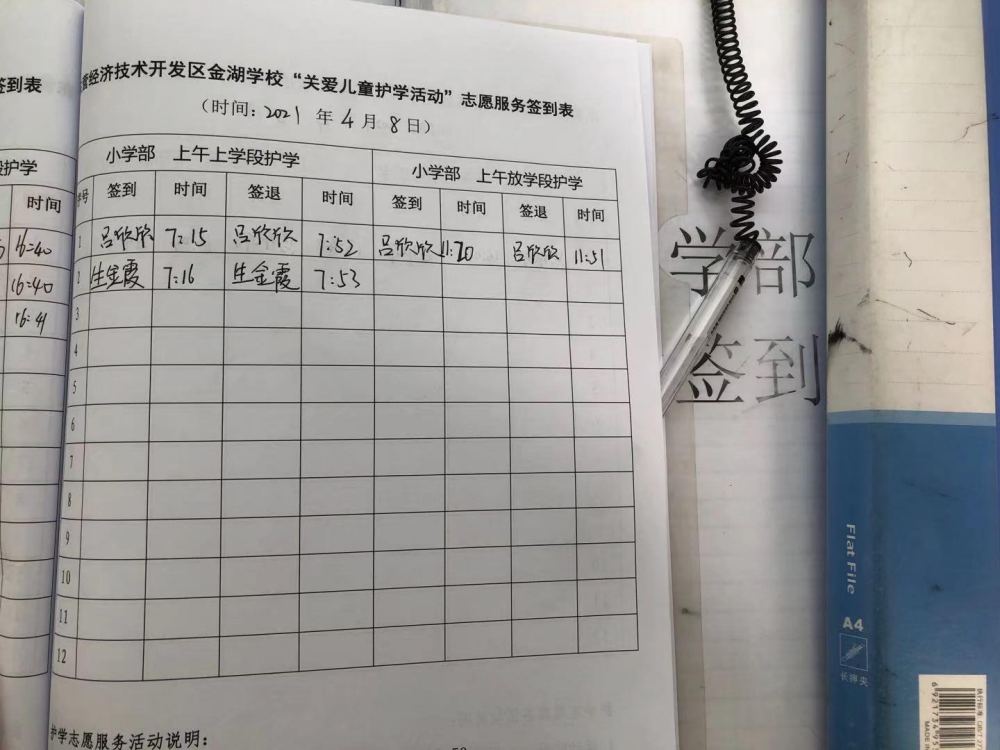 签到表
经济技术开发区金湖学校“关爱儿童护学活动”志愿服务签到表
（时间：2021 年 4 月 8 日）
护学
时间
16:40
16:40
16:41
小学部 上午上学段护学 小学部 上午放学段护学
号 签到 时间 签退 时间 签到 时间 签退 时间
1 吕欣欣 7:15 吕欣欣 7:52 吕欣欣 11:20 吕欣欣 11:51
2 生金霞 7:16 生金霞 7:53
3
4
5
6
7
8
9
10
11
12
护学志愿服务活动说明：
学部
签到
Flat File
A4
长押夹